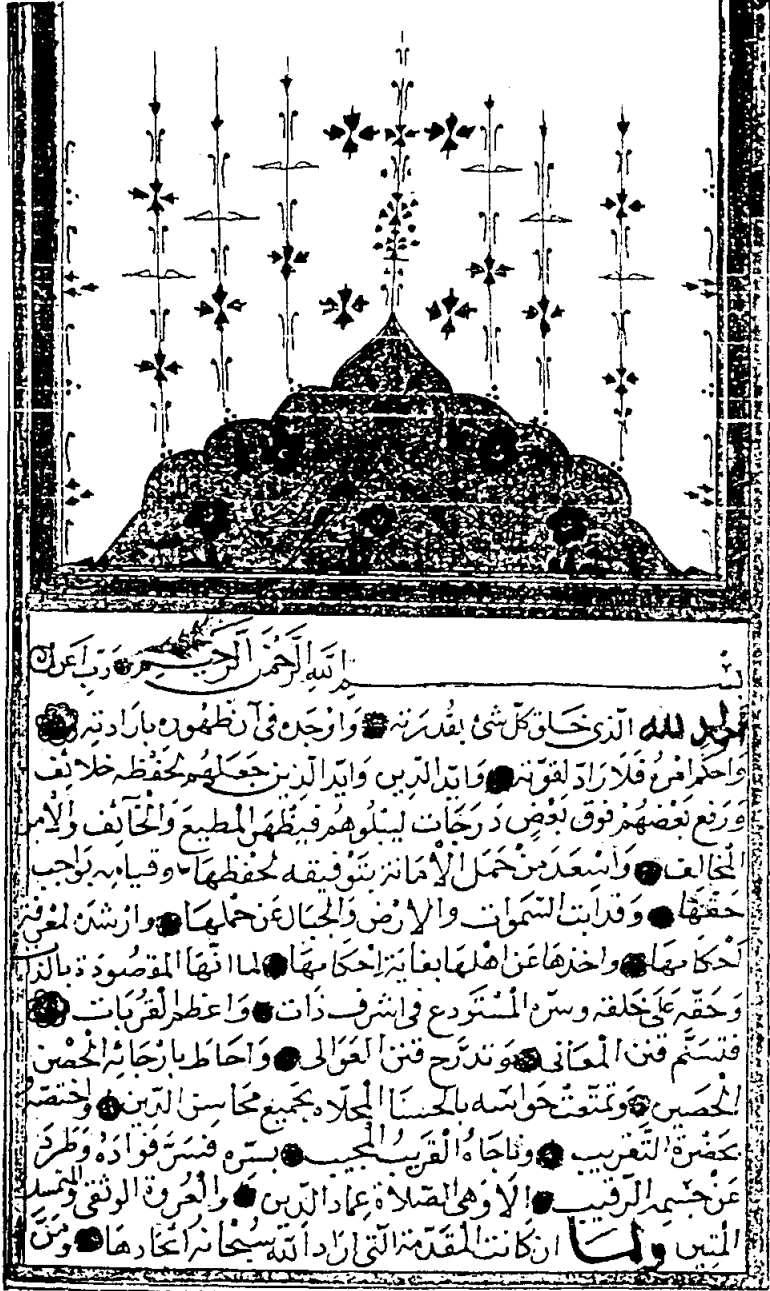 بسم الله الرحمن الرحيم رب اعن
الحمد لله الذى خلق كل شئ بقدرته واوجده فى آن ظهوره بارادته
واحكم امره فلا راد لقوته وايد الدين وايد الذين جعلهم لحفظه خلائف
ورفع بعضهم فوق بعض درجات ليبلوهم فيظهر المطيع والخائف والامن
المخالف واسعد من حمل الامانة بتوفيقه لحفظها وقيامه بواجب
حقها وقد ابت السموات والارض والجبال عن حملها وارشده لمعرفة
احكامها واخذها عن اهلها بغاية احكامها لما انها المقصودة بالذات
وحقه على خلقه وسره المستودع فى اشرف ذات واعظم القربات
فتسنم قنن المعانى وتدرج قنن العوالى واحاط بارجائه الحصن
الحصين وتمتعت حواسه بالحسنا المجلاه بجميع محاسن الدين واختصه
بحضرة التقريب وناجاه القريب المجيب بسره فسر فواده وطرد
عن جسمه الرقيب الا وهى الصلاة عماد الدين والعروة الوثقى
المتين ولما ان كانت المقدمة التى اراد الله سبحانه ومن